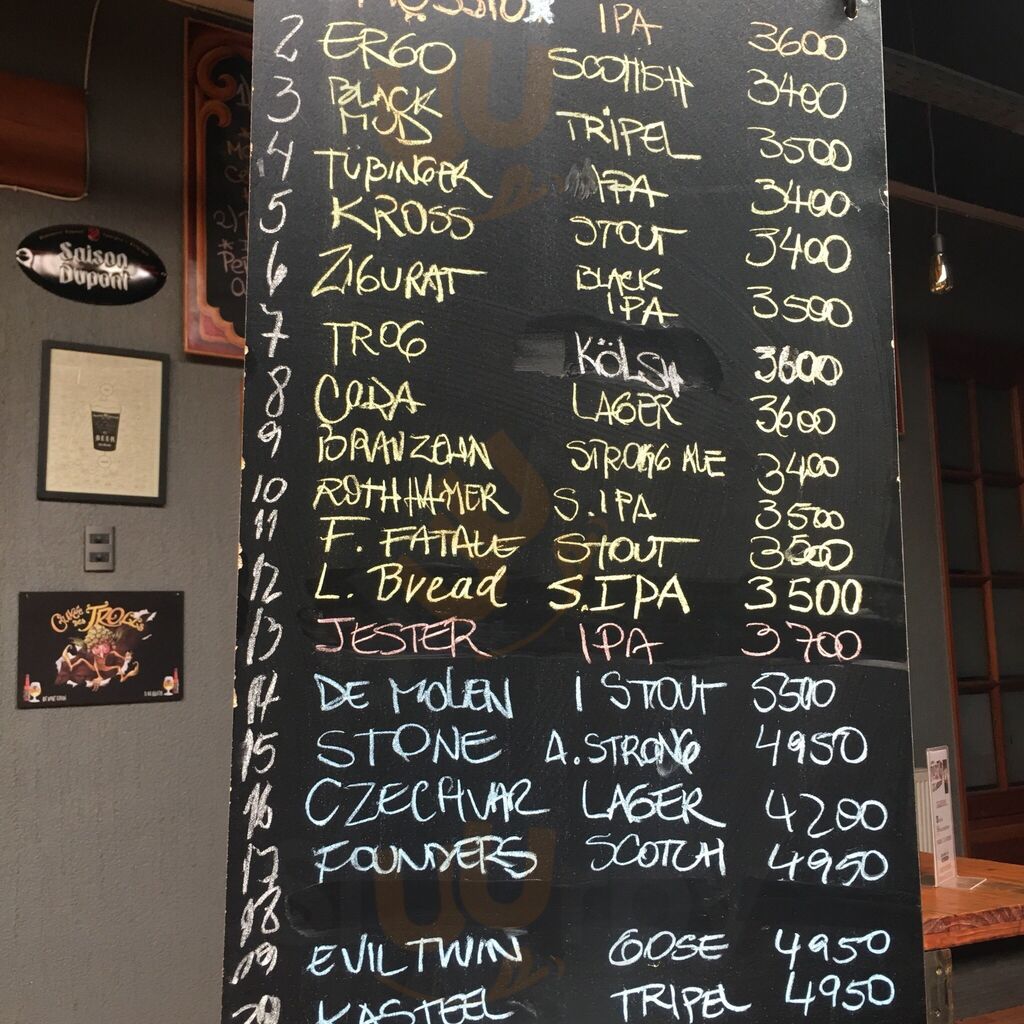 IPA 3600
2 ERGO SCOTTISH 3400
3 BLACK MUD TRIPEL 3500
4 TÜBINGER IPA 3400
5 KROSS STOUT 3400
6 ZIGURAT BLACK IPA 3500
7 TROG KÖLSH 3600
8 CODA LAGER 3600
9 STRONG ALE 3400
10 ROTHHAMMER S.IPA 3500
11 F. FATALE STOUT 3500
12 L. Bread S.IPA 3500
13 JESTER IPA 3700
14 DE MOLEN I STOUT 5500
15 STONE A.STRONG 4950
16 CZECHVAR LAGER 4200
17 FOUNDERS SCOTCH 4950
18
19 EVIL TWIN GOSE 4950
20 KASTEEL TRIPEL 4950
Saison
Dupont
BEER
TROG